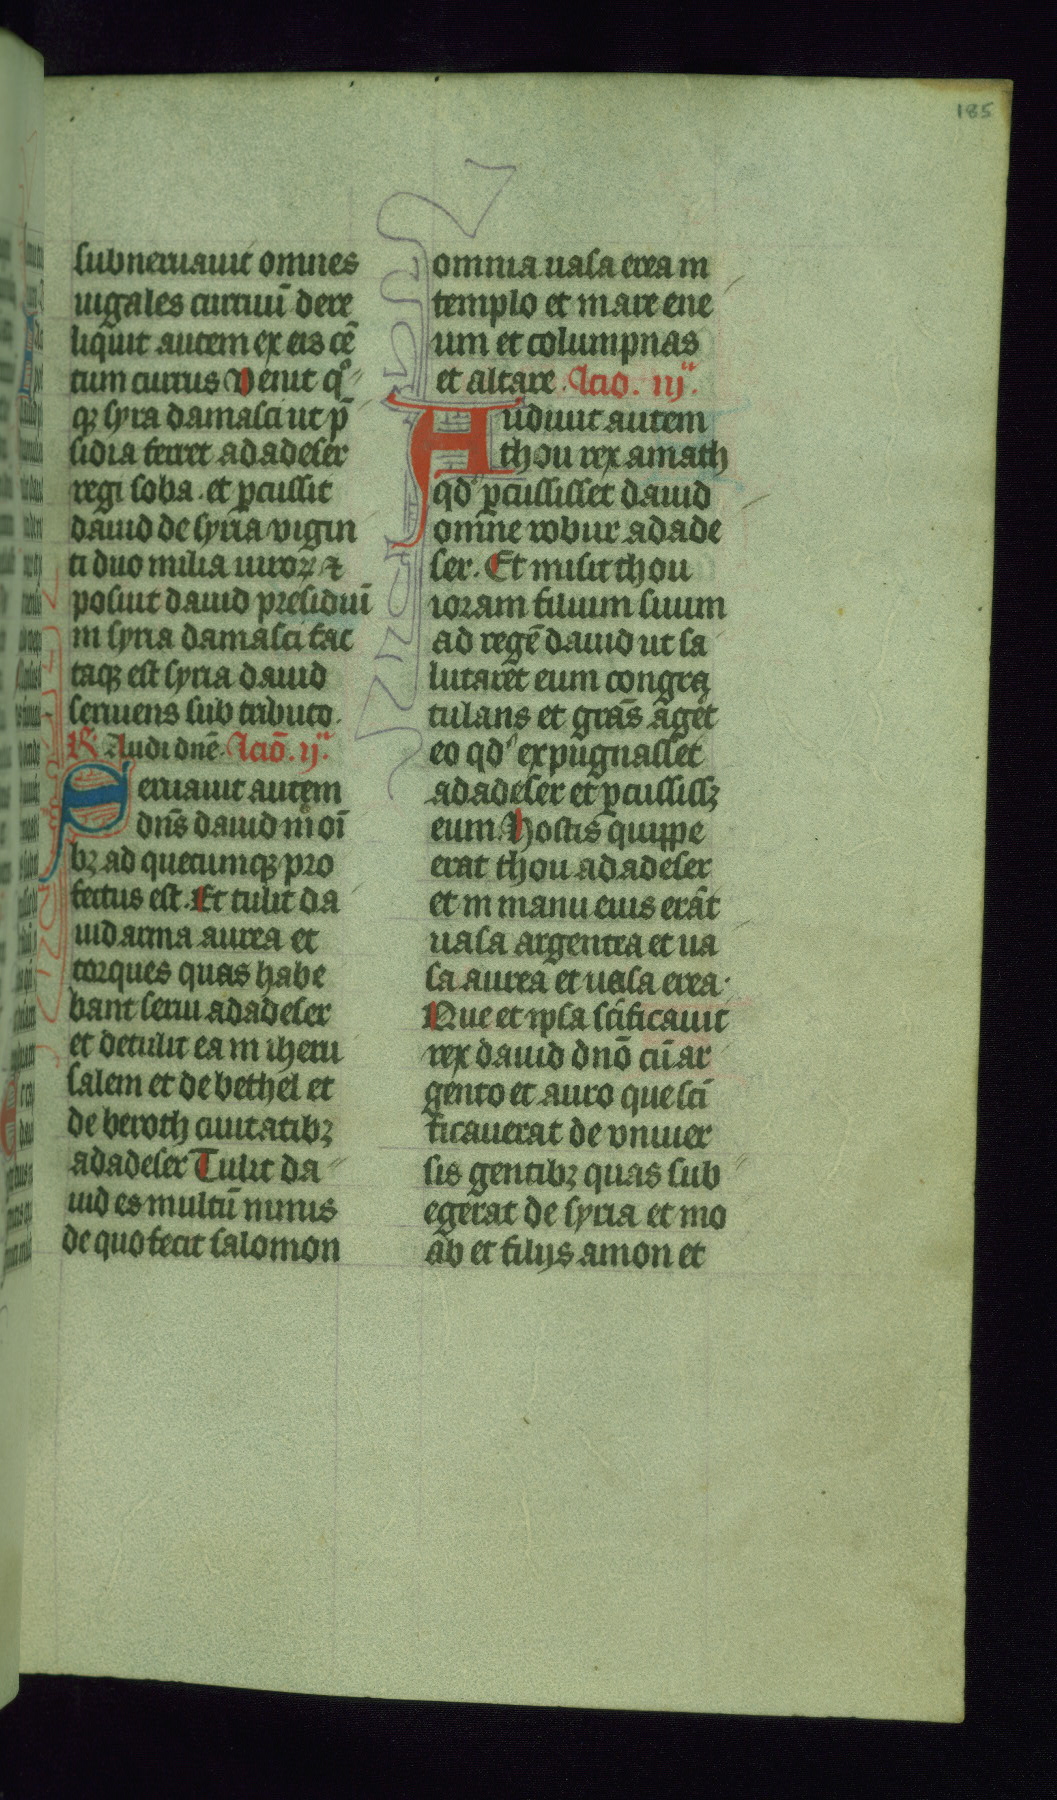 185
subneruauit omnes
iugales curruū dere
liquit autem ex eis cē
tum currus Uenit qͦ
qꝫ syra damasci ut p̄
sidia ferret adadeser
regi soba. et ꝑcussit
dauid de syria vigin
ti duo milia uiroꝝ ⁊
posuit dauid presidiuī
in syria damasci fac
taqꝫ est syria dauid
seruiens sub tributo.
R̄ Audi dnē. Lcō. ijª.
Seruauit autem
dn̄s dauid in oī
bꝫ ad quecumqꝫ pro
fectus est. Et tulit da
uid arma aurea et
torques quas habe
bant serui adadeser
et detulit ea in iheru
salem et de bethel et
de beroth ciuitatibꝫ
adadeser Tulit da
uid es multū nimis
de quo fecit salomon
omnia uasa erea in
templo et mare ene
um et columpnas
et altare. Lcio. iijª.
Audiuit autem
thou rex amath
qd' ꝑcussisset dauid
omne robur adade
ser. Et misit thou
ioram filium suum
ad regē dauid ut sa
lutaret eum congra
tulans et grās āget
eo qd' expugnasset
adadeser et ꝑcussissꝫ
eum. Hostis quippe
erat thou adadeser
et in manu eius erāt
uasa argentea et ua
sa aurea et uasa erea.
Que et ipsa scīficauit
rex dauid dnō cū ar
gento et auro que scī
ficauerat de vniuer
sis gentibꝫ quas sub
egerat de syria et mo
ab et filijs amon et